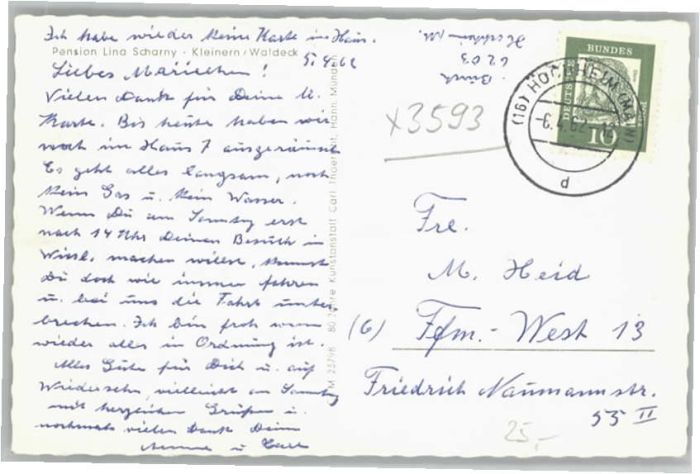 Ich habe wieder keine Karte im Haus.
Pension Lina Scharny · Kleinern/Waldeck
5.4.62
Liebes Mariechen!
Vielen Dank für Deine l.
Karte. Bis heute haben wir
noch im Haus 7 ausgeräumt
Es geht alles langsam, noch
kein Gas u. kein Wasser.
Wenn Du am Samstag erst
nach 14 Uhr Deinen Besuch in
Wiesb. machen willst, kannst
Du doch wie immer fahren
u. bei uns die Fahrt unter
brechen. Ich bin froh wenn
wieder alles in Ordnung ist.
Alles Gute für Dich u. auf
Wiedersehn, vielleicht am Samstag
mit herzlichen Grüßen u.
nochmals vielen Dank Deine
u.
M 25/98 80 Jahre Kunstanstalt Carl Thoericht, Hann. Münden
Hochheim/M.
6203
x3593
(16) HOCHHEIM (MAIN)
-6.4.62
d
DEUTSCHE BUNDESPOST
10
Frl.
M. Heid
(6) Ffm.-West 13
Friedrich Naumannstr.
55 II
25,-